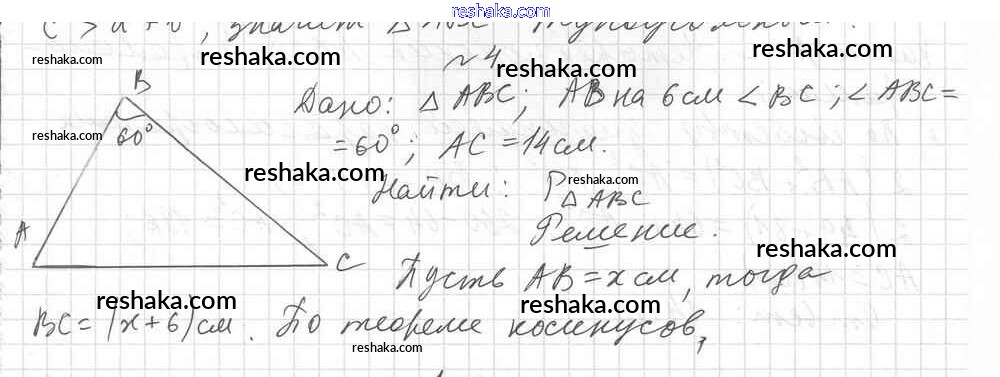 reshaka.com
c² > a² + b², значит △ ABC тупоугольный.
reshaka.com reshaka.com
№4 reshaka.com
B
Дано: △ ABC; AB на 6 см < BC; ∠ ABC =
reshaka.com
60°
= 60°; AC = 14 см.
reshaka.com
Найти: P△ABC
reshaka.com
Решение.
A
reshaka.com
C
Пусть AB = x см, тогда
reshaka.com reshaka.com
BC = (x+6) см. По теореме косинусов,
reshaka.com